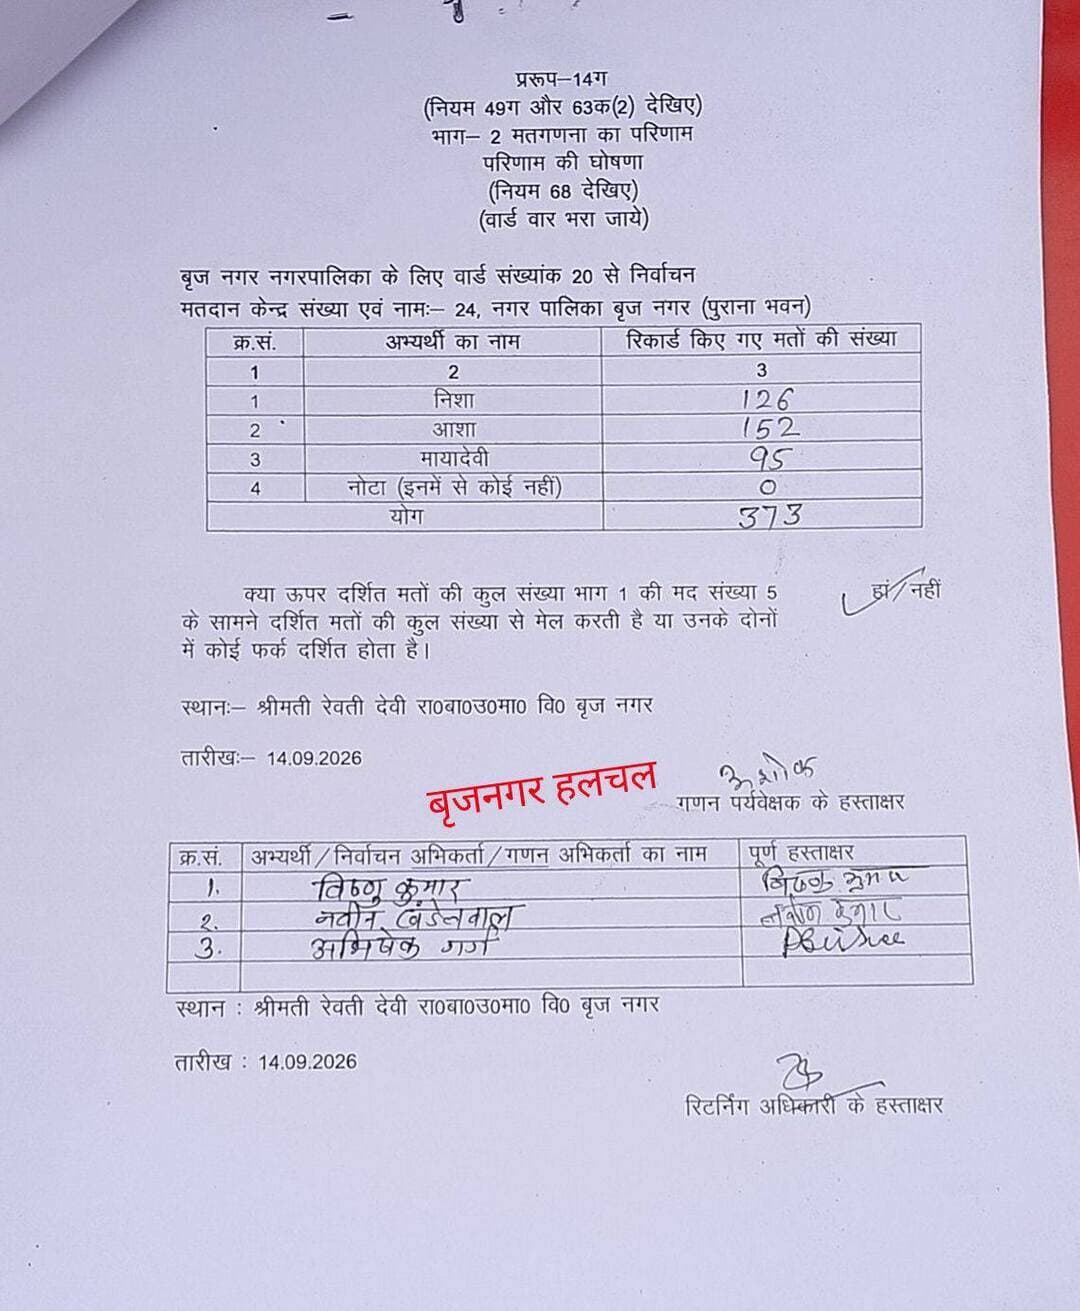 प्ररूप–14ग
(नियम 49ग और 63क(2) देखिए)
भाग– 2 मतगणना का परिणाम
परिणाम की घोषणा
(नियम 68 देखिए)
(वार्ड वार भरा जाये)
बृज नगर नगरपालिका के लिए वार्ड संख्यांक 20 से निर्वाचन
मतदान केन्द्र संख्या एवं नामः– 24, नगर पालिका बृज नगर (पुराना भवन)
क्र.सं. अभ्यर्थी का नाम रिकार्ड किए गए मतों की संख्या
1 2 3
1 निशा 126
2 आशा 152
3 मायादेवी 95
4 नोटा (इनमें से कोई नहीं) 0
योग 373
क्या ऊपर दर्शित मतों की कुल संख्या भाग 1 की मद संख्या 5 हां/नहीं
के सामने दर्शित मतों की कुल संख्या से मेल करती है या उनके दोनों
में कोई फर्क दर्शित होता है।
स्थानः– श्रीमती रेवती देवी रा0बा0उ0मा0 वि0 बृज नगर
तारीखः– 14.09.2026
बृजनगर हलचल
गणन पर्यवेक्षक के हस्ताक्षर
क्र.सं. अभ्यर्थी/निर्वाचन अभिकर्ता/गणन अभिकर्ता का नाम पूर्ण हस्ताक्षर
1. विष्णु कुमार
2. नवीन खंडेलवाल
3. अभिषेक गर्ग
स्थान : श्रीमती रेवती देवी रा0बा0उ0मा0 वि0 बृज नगर
तारीख : 14.09.2026
रिटर्निंग अधिकारी के हस्ताक्षर